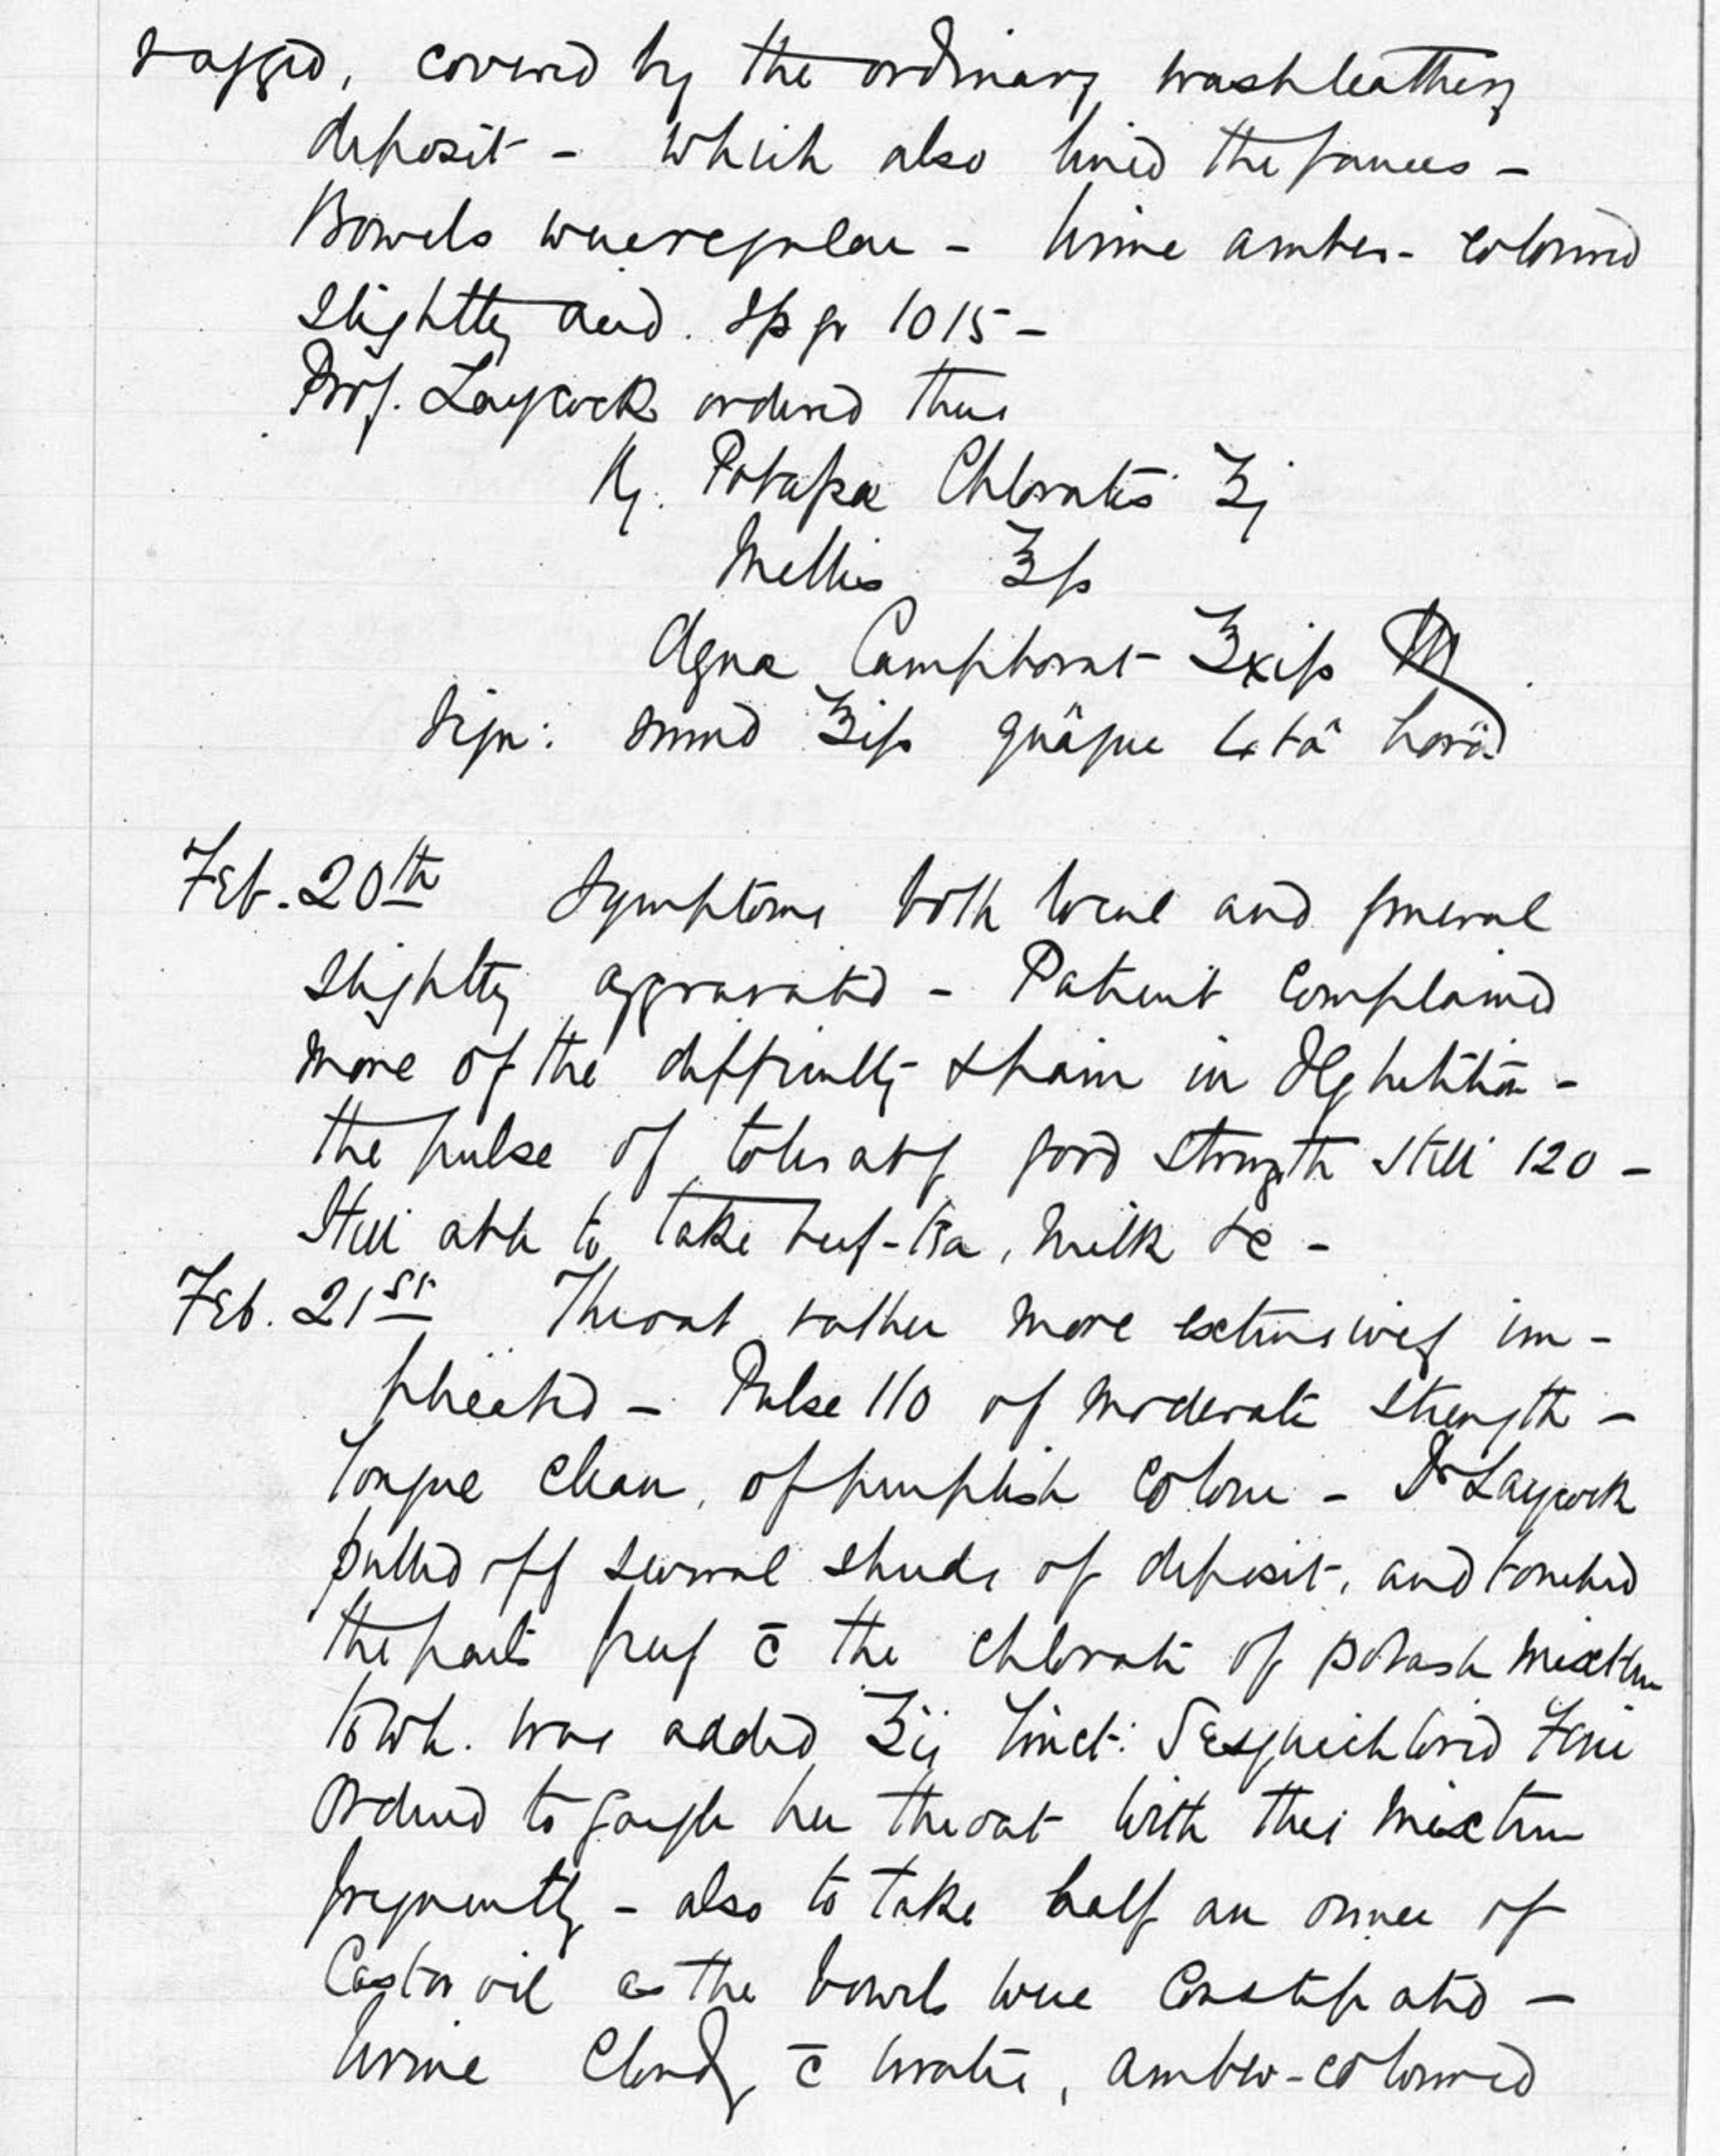 ragged, covered by the ordinary washleathery
deposit - which also lined the fauces -
Bowels were regular - Urine amber-coloured
slightly acid. Sp gr 1015 -
Prof. Laycock ordered thus
℞. Potassæ Chloratis ʒj
Mellis ℥ss
Aquæ Camphorat ℥xiss M
Sign: sumd ℥iss quâque 4tâ horâ
Feb. 20th Symptoms both local and general
slightly aggravated - Patient complained
more of the difficulty & pain in deglutition -
the pulse of tolerably good strength still 120 -
Still able to take beef-tea, milk &c -
Feb. 21st Throat rather more extensively im-
plicated - Pulse 110 of moderate strength -
Tongue clean, of purplish colour - Dr Laycock
pulled off several shreds of deposit, and touched
the parts freely c̄ the chlorate of potash mixture
to wh. was added ʒij Tinct: Sesquichlorid Ferri
Ordered to gargle her throat with this mixture
frequently - also to take half an ounce of
Castor oil as the bowels were constipated -
Urine cloudy c̄ urates, amber-coloured